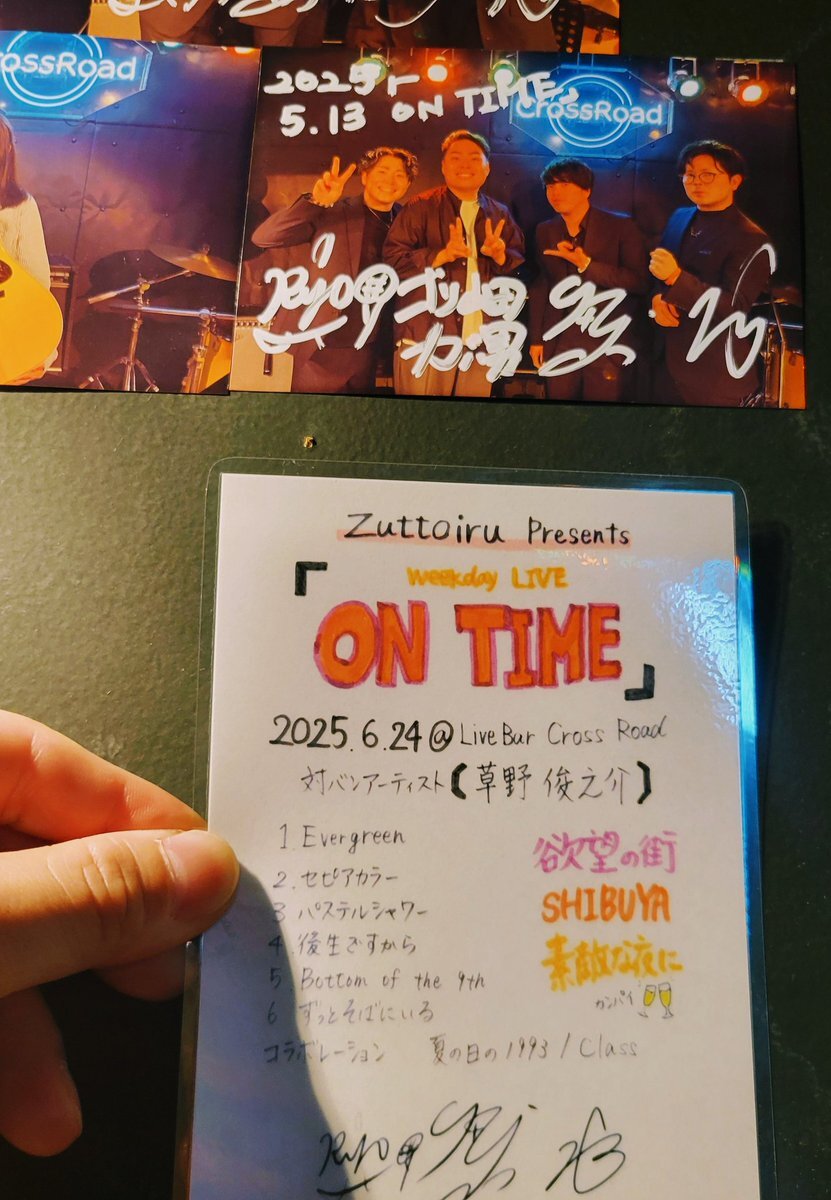 ossRoad
2025
5.13 ON TIME
CrossRoad
Zuttoiru Presents
「 weekday LIVE
ON TIME 」
2025.6.24@Live Bar Cross Road
対バンアーティスト【草野 俊之介】
1. Evergreen
2. セピアカラー
3 パステルシャワー
4. 後生ですから
5. Bottom of the 9th
6 ずっとそばにいる
欲望の街
SHIBUYA
素敵な夜に
カンパイ
コラボレーション 夏の日の1993 / Class